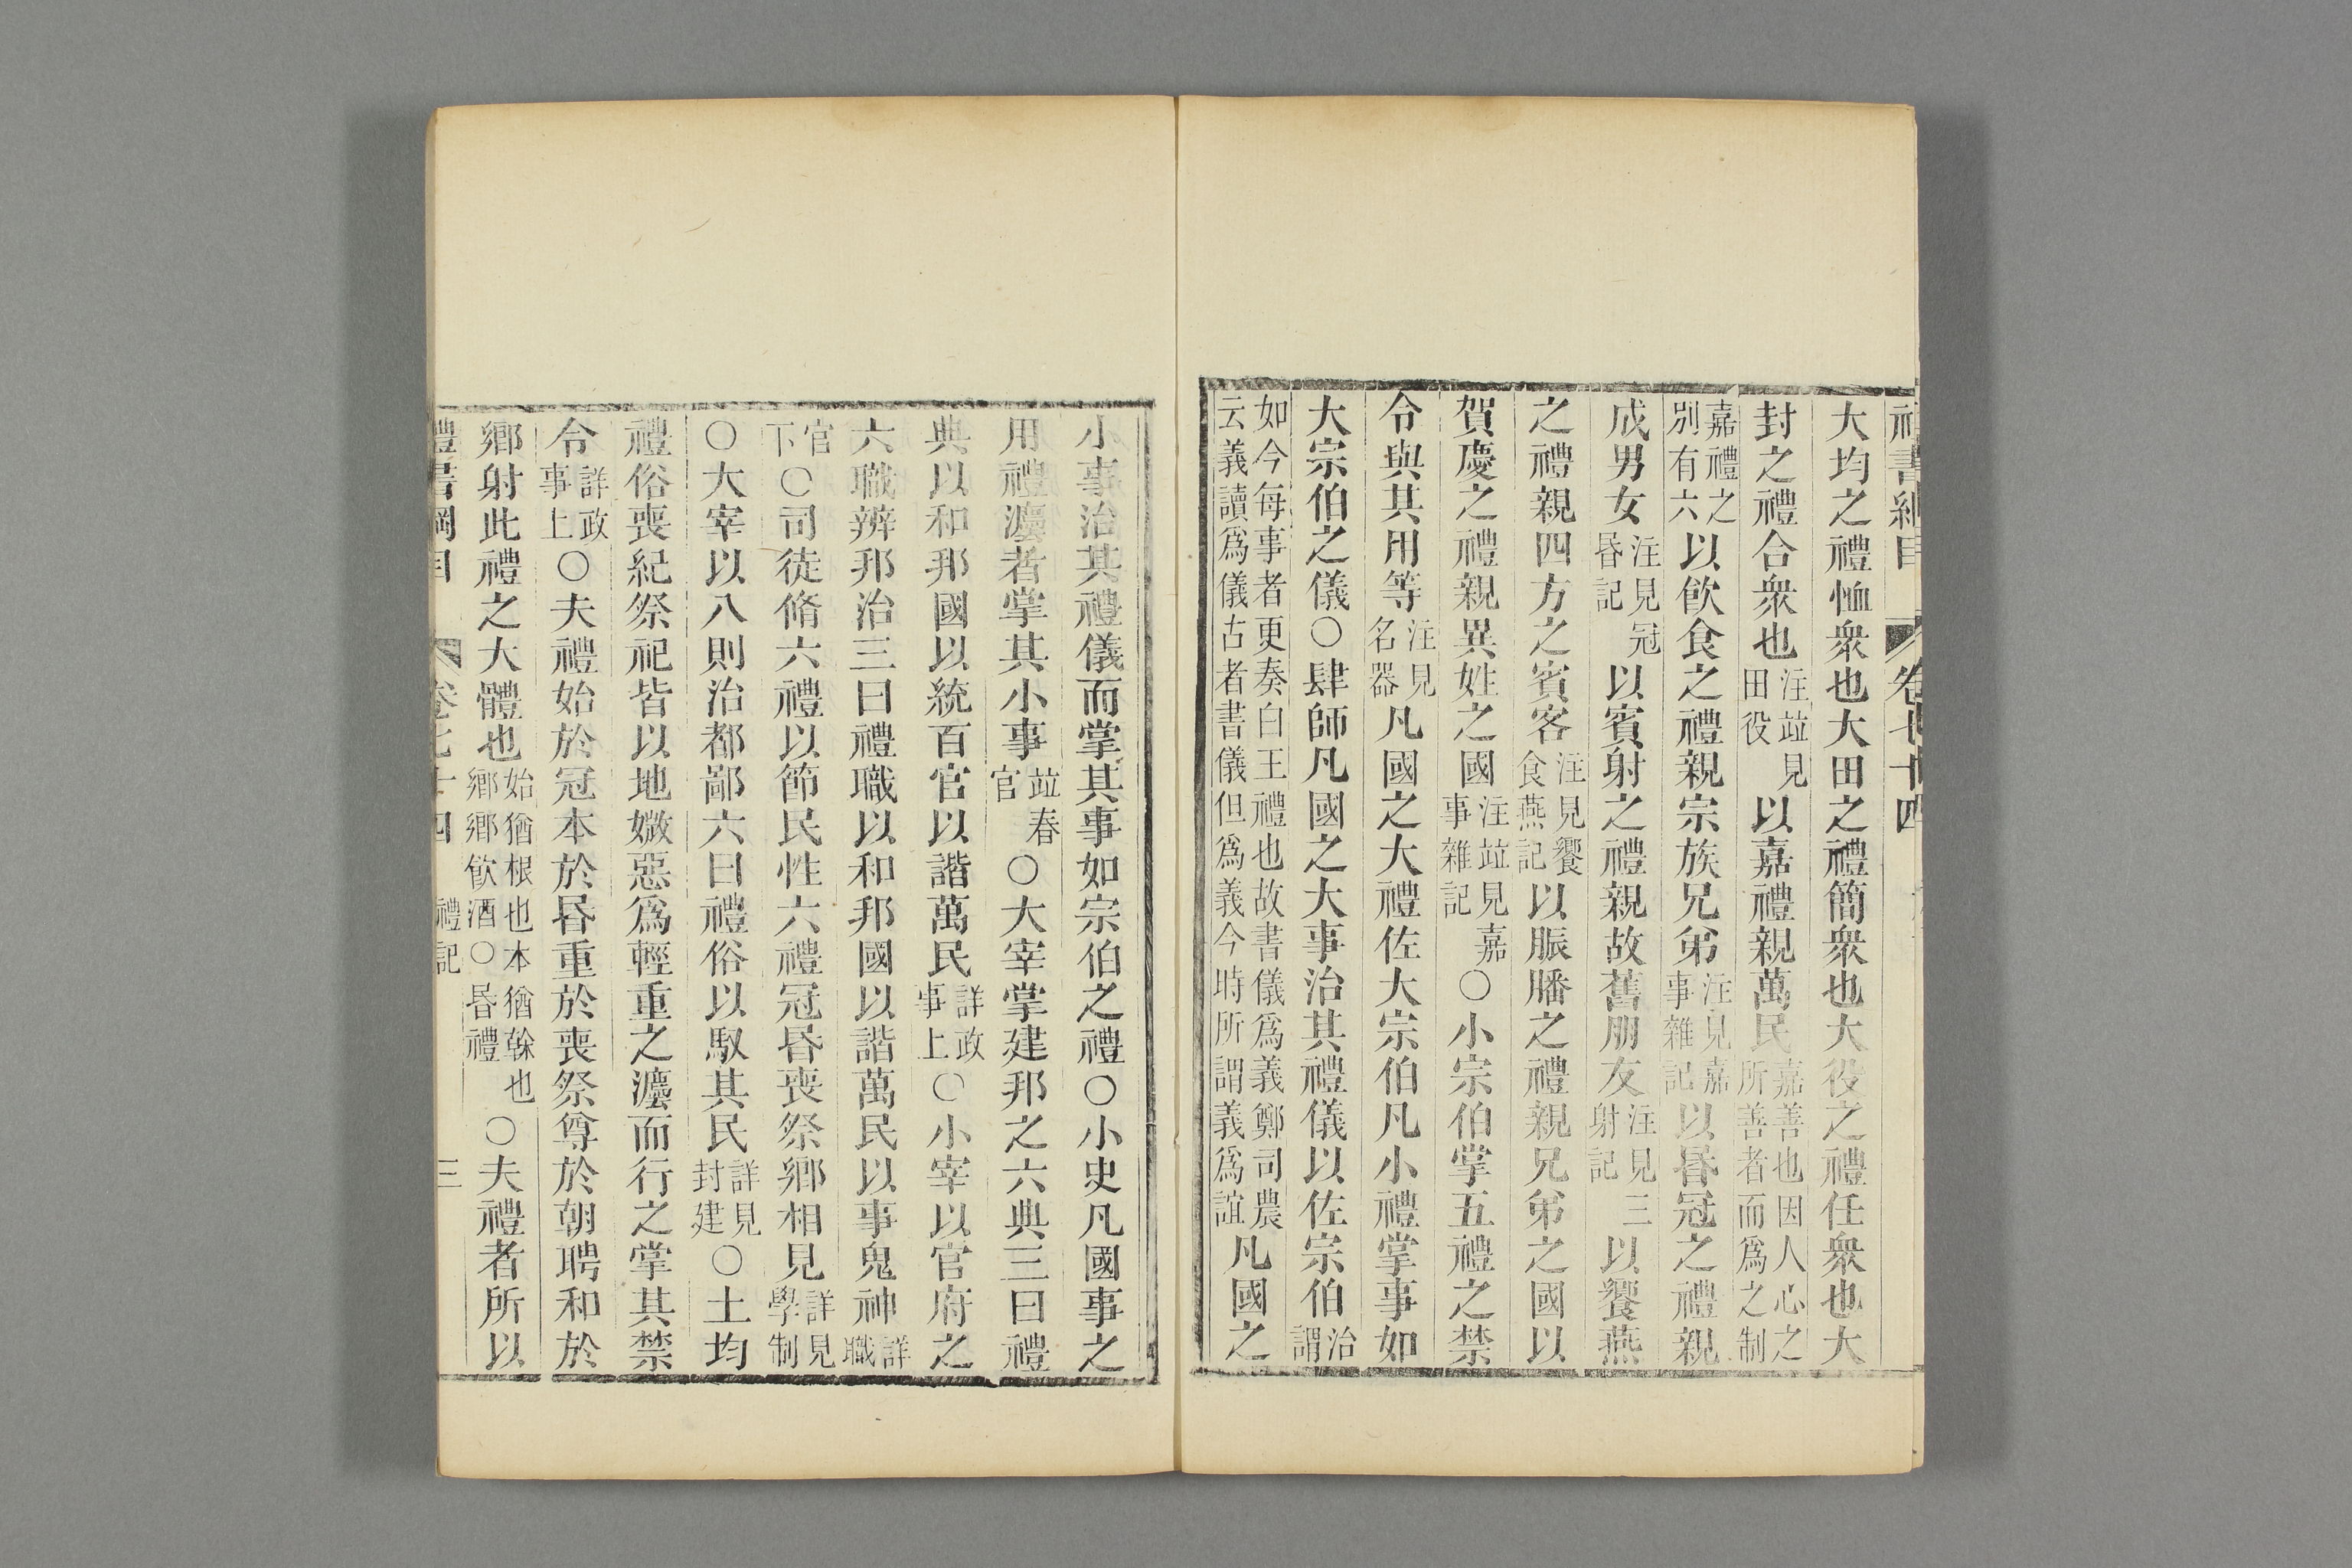 禮書綱目 卷七十四
大均之禮恤衆也大田之禮簡衆也大役之禮任衆也大
封之禮合衆也注竝見田役以嘉禮親萬民嘉善也因人心之所善者而爲之制
嘉禮之別有六以飮食之禮親宗族兄弟注見嘉事雜記以昏冠之禮親
成男女注見冠昏記以賓射之禮親故舊朋友注見三射記以饗燕
之禮親四方之賓客注見饗食燕記以脤膰之禮親兄弟之國以
賀慶之禮親異姓之國注竝見嘉事雜記○小宗伯掌五禮之禁
令與其用等注見名器凡國之大禮佐大宗伯凡小禮掌事如
大宗伯之儀○肆師凡國之大事治其禮儀以佐宗伯治謂
如今每事者更奏白王禮也故書儀爲義鄭司農云義讀爲儀古者書儀但爲義今時所謂義爲誼凡國之
小事治其禮儀而掌其事如宗伯之禮○小史凡國事之
用禮灋者掌其小事竝春官○大宰掌建邦之六典三曰禮
典以和邦國以統百官以諧萬民詳政事上○小宰以官府之
六職辨邦治三曰禮職以和邦國以諧萬民以事鬼神詳職
官下○司徒脩六禮以節民性六禮冠昏喪祭鄉相見詳見學制
○大宰以八則治都鄙六曰禮俗以馭其民詳見封建○土均
禮俗喪紀祭祀皆以地媺惡爲輕重之灋而行之掌其禁
令詳政事上○夫禮始於冠本於昏重於喪祭尊於朝聘和於
鄉射此禮之大體也始猶根也本猶榦也鄉鄉飮酒○昏禮○夫禮者所以
禮書綱目 卷七十四 禮記 三